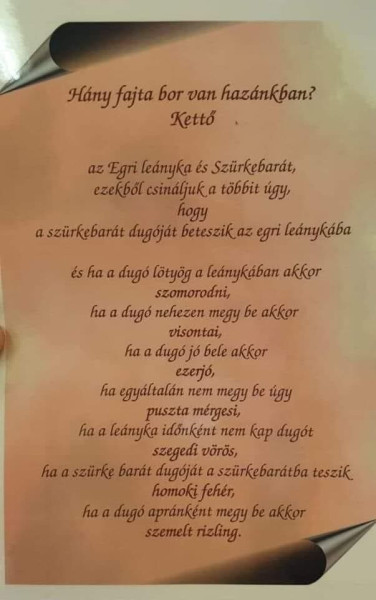 Hány fajta bor van hazánkban?
Kettő
az Egri leányka és Szürkebarát,
ezekből csináljuk a többit úgy,
hogy
a szürkebarát dugóját beteszik az egri leánykába
és ha a dugó lötyög a leánykában akkor
szomorodni,
ha a dugó nehezen megy be akkor
visontai,
ha a dugó jó bele akkor
ezerjó,
ha egyáltalán nem megy be úgy
puszta mérgesi,
ha a leányka időnként nem kap dugót
szegedi vörös,
ha a szürke barát dugóját a szürkebarátba teszik
homoki fehér,
ha a dugó apránként megy be akkor
szemelt rizling.